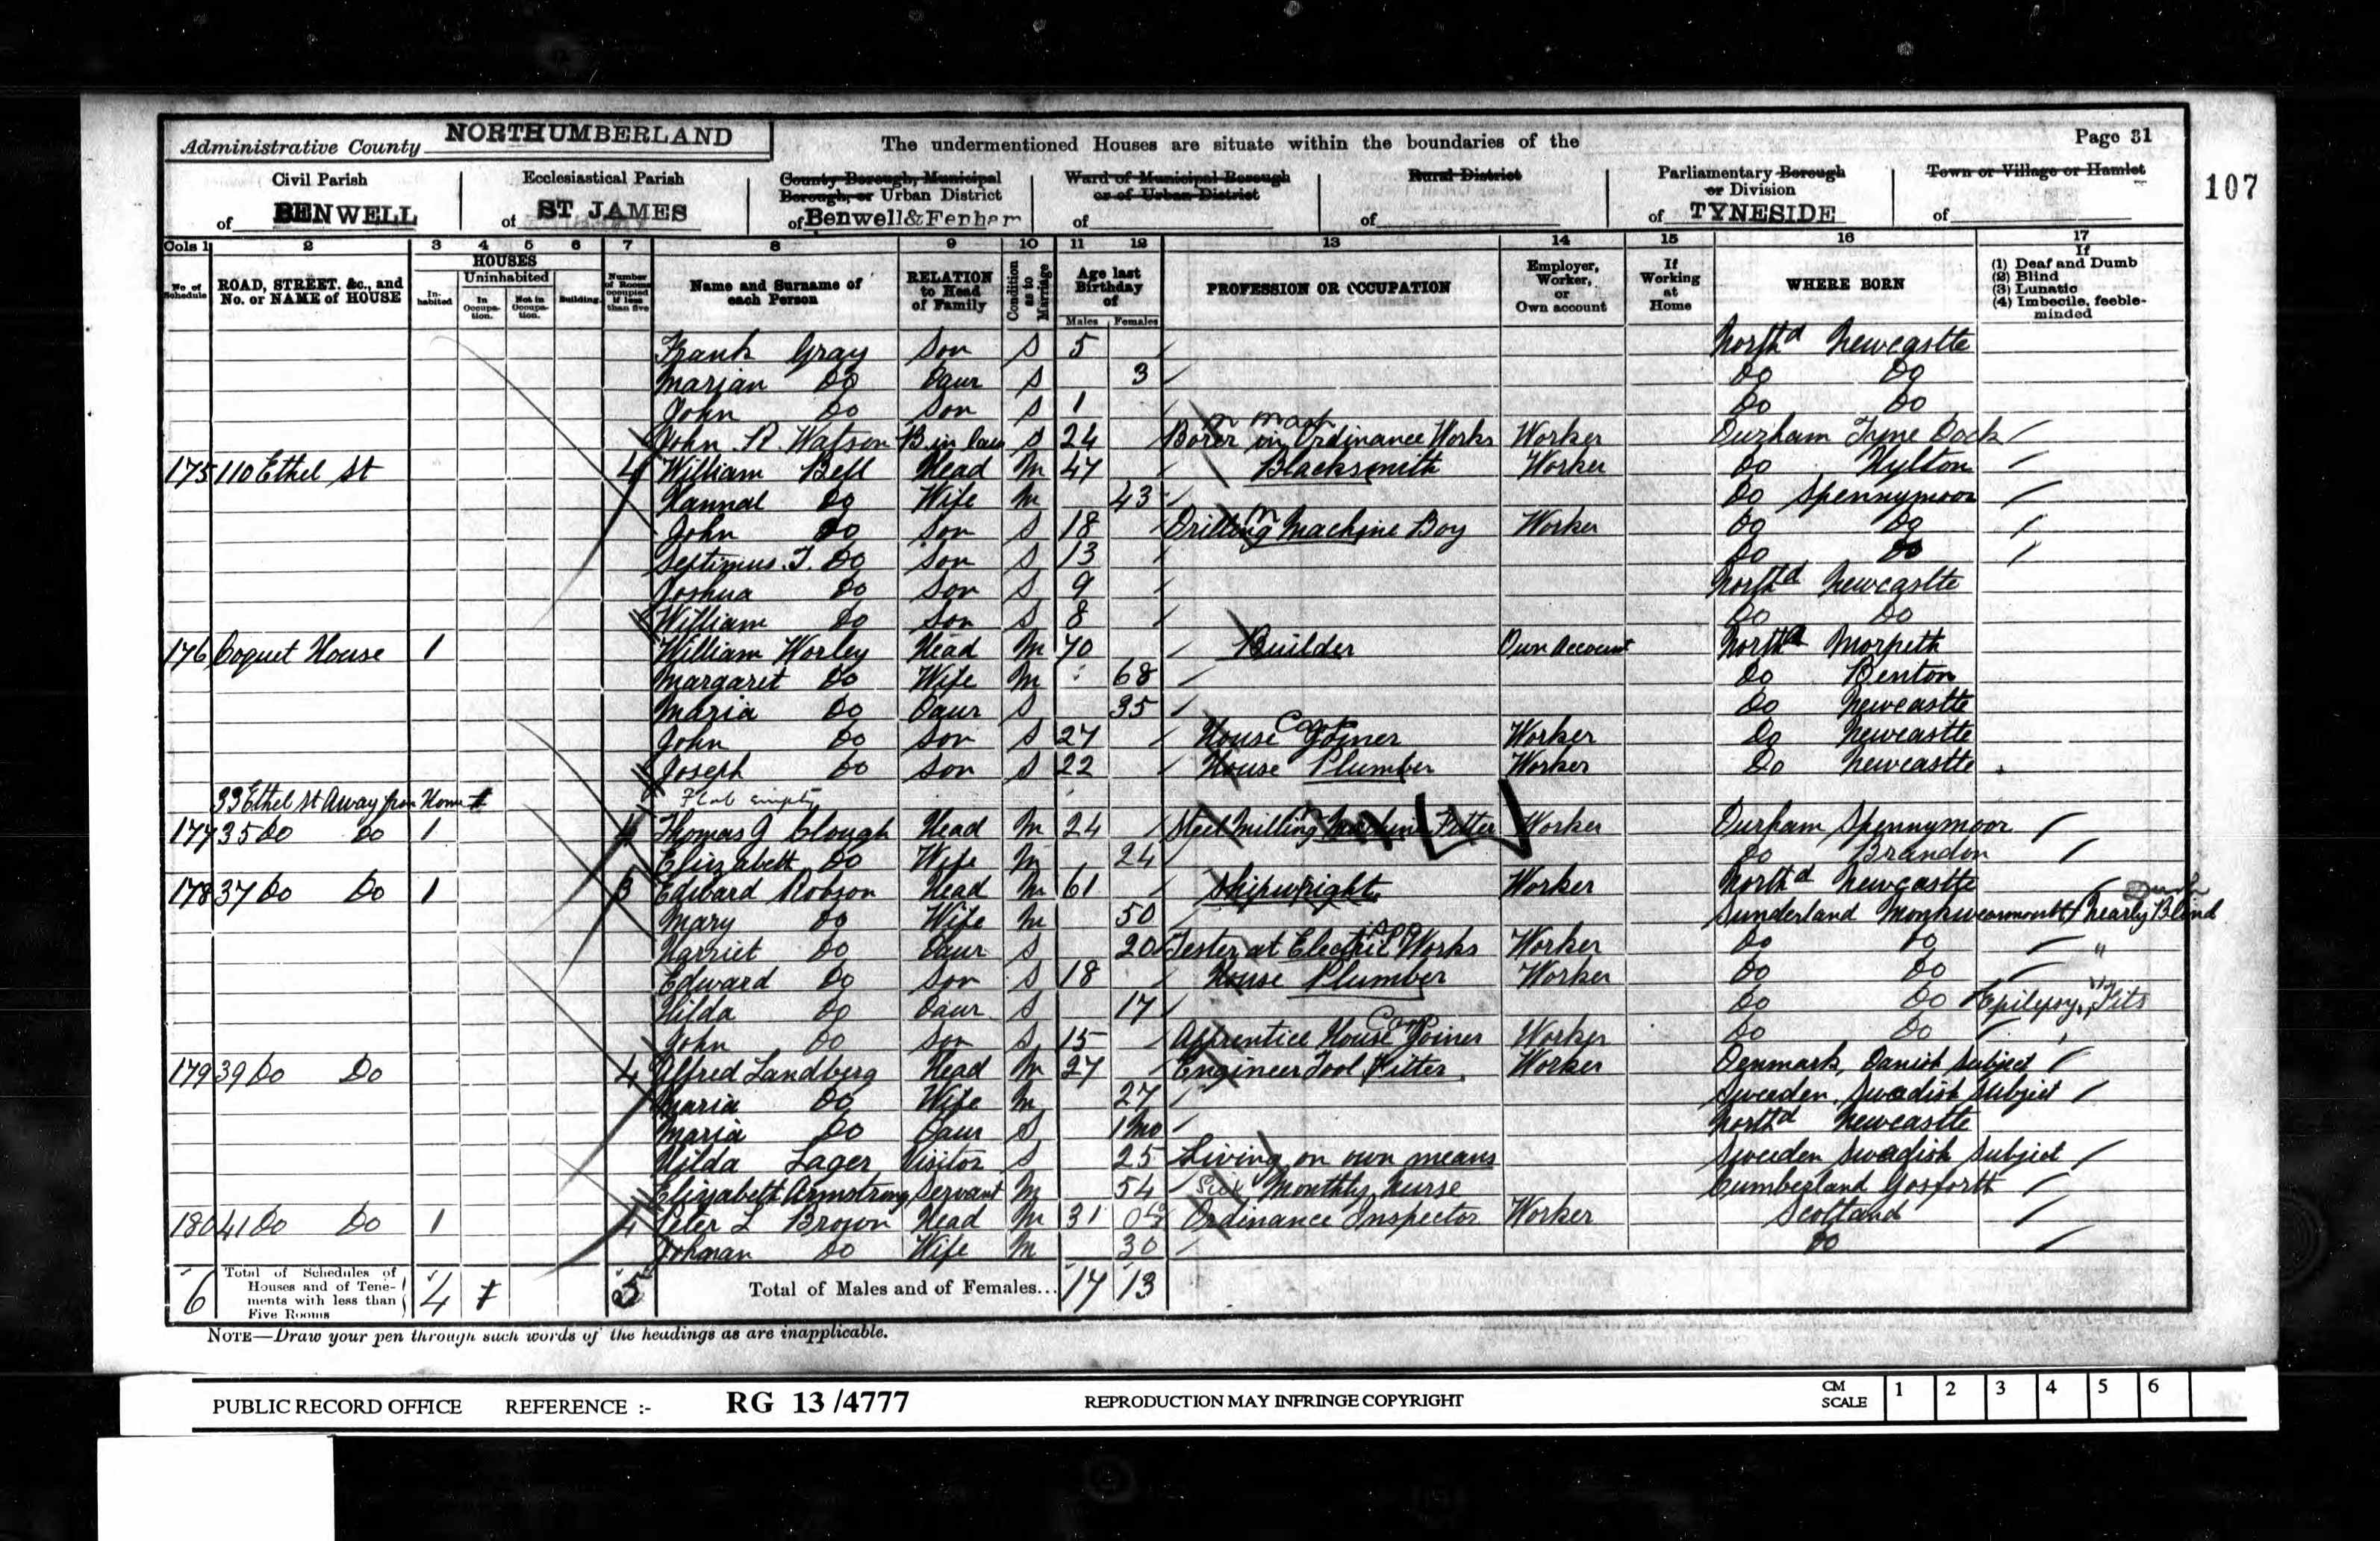 Administrative County NORTHUMBERLAND
The undermentioned Houses are situate within the boundaries of the
Page 31
107
Civil Parish of BENWELL
Ecclesiastical Parish of ST JAMES
County Borough, Municipal Borough, or Urban District of Benwell & Fenham
Ward of Municipal Borough or of Urban District of
Rural District of
Parliamentary Borough or Division of TYNESIDE
Town or Village or Hamlet of
Cols 1 2 3 4 5 6 7 8 9 10 11 12 13 14 15 16 17
No. of Schedule
ROAD, STREET, &c., and No. or NAME of HOUSE
HOUSES
Inhabited
Uninhabited
In Occupation.
Not in Occupation.
Building.
Number of Rooms occupied if less than five
Name and Surname of each Person
RELATION to Head of Family
Condition as to Marriage
Age last Birthday of
Males Females
PROFESSION OR OCCUPATION
Employer, Worker, or Own account
If Working at Home
WHERE BORN
If (1) Deaf and Dumb (2) Blind (3) Lunatic (4) Imbecile, feeble-minded
Frank Gray Son S 5 Northd Newcastle
Marian Do Daur S 3 Do Do
John Do Son S 1 Do Do
John R. Watson B. in law S 24 Borer in Ordinance Works Worker Durham Tyne Dock
175 110 Ethel St 4 William Bell Head M 47 Blacksmith Worker Do Hylton
Hannah Do Wife M 43 Do Spennymoor
John Do Son S 18 Drilling Machine Boy Worker Do Do
Septimus. T. Do Son S 13 Do Do
Joshua Do Son S 9 Northd Newcastle
William Do Son S 8 Do Do
176 Coquet House 1 William Worley Head M 70 Builder Own Account Northd Morpeth
Margaret Do Wife M 68 Do Benton
Maria Do Daur S 35 Do Newcastle
John Do Son S 27 House Joiner Worker Do Newcastle
Joseph Do Son S 22 House Plumber Worker Do Newcastle
33 Ethel St Away from Home Flat empty
177 35 Do Do 1 4 Thomas G Clough Head M 24 Steel Milling Machine Fitter Worker Durham Spennymoor
Elizabeth Do Wife M 24 Do Brandon
178 37 Do Do 1 3 Edward Robson Head M 61 Shipwright Worker Northd Newcastle
Mary Do Wife M 50 Sunderland Monkwearmouth Nearly Blind
Harriet Do Daur S 20 Tester at Electric Works Worker Do Do
Edward Do Son S 18 House Plumber Worker Do Do
Hilda Do Daur S 17 Do Do Epilepsy, Fits
John Do Son S 15 Apprentice House Joiner Worker Do Do
179 39 Do Do 4 Alfred Landberg Head M 27 Engineer Tool Fitter Worker Denmark, Danish Subject
Maria Do Wife M 27 Sweden, Swedish Subject
Maria Do Daur S 1mo Northd Newcastle
Hilda Lager Visitor S 25 Living on own means Sweden Swedish Subject
Elizabeth Armstrong Servant M 54 Monthly Nurse Cumberland Gosforth
180 41 Do Do 1 4 Peter L Brown Head M 31 Ordinance Inspector Worker Scotland
Johman Do Wife M 30 Do
6 Total of Schedules of Houses and of Tenements with less than Five Rooms 4 5 Total of Males and of Females... 17 13
NOTE—Draw your pen through such words of the headings as are inapplicable.
PUBLIC RECORD OFFICE REFERENCE :- RG 13 /4777 REPRODUCTION MAY INFRINGE COPYRIGHT CM SCALE 1 2 3 4 5 6